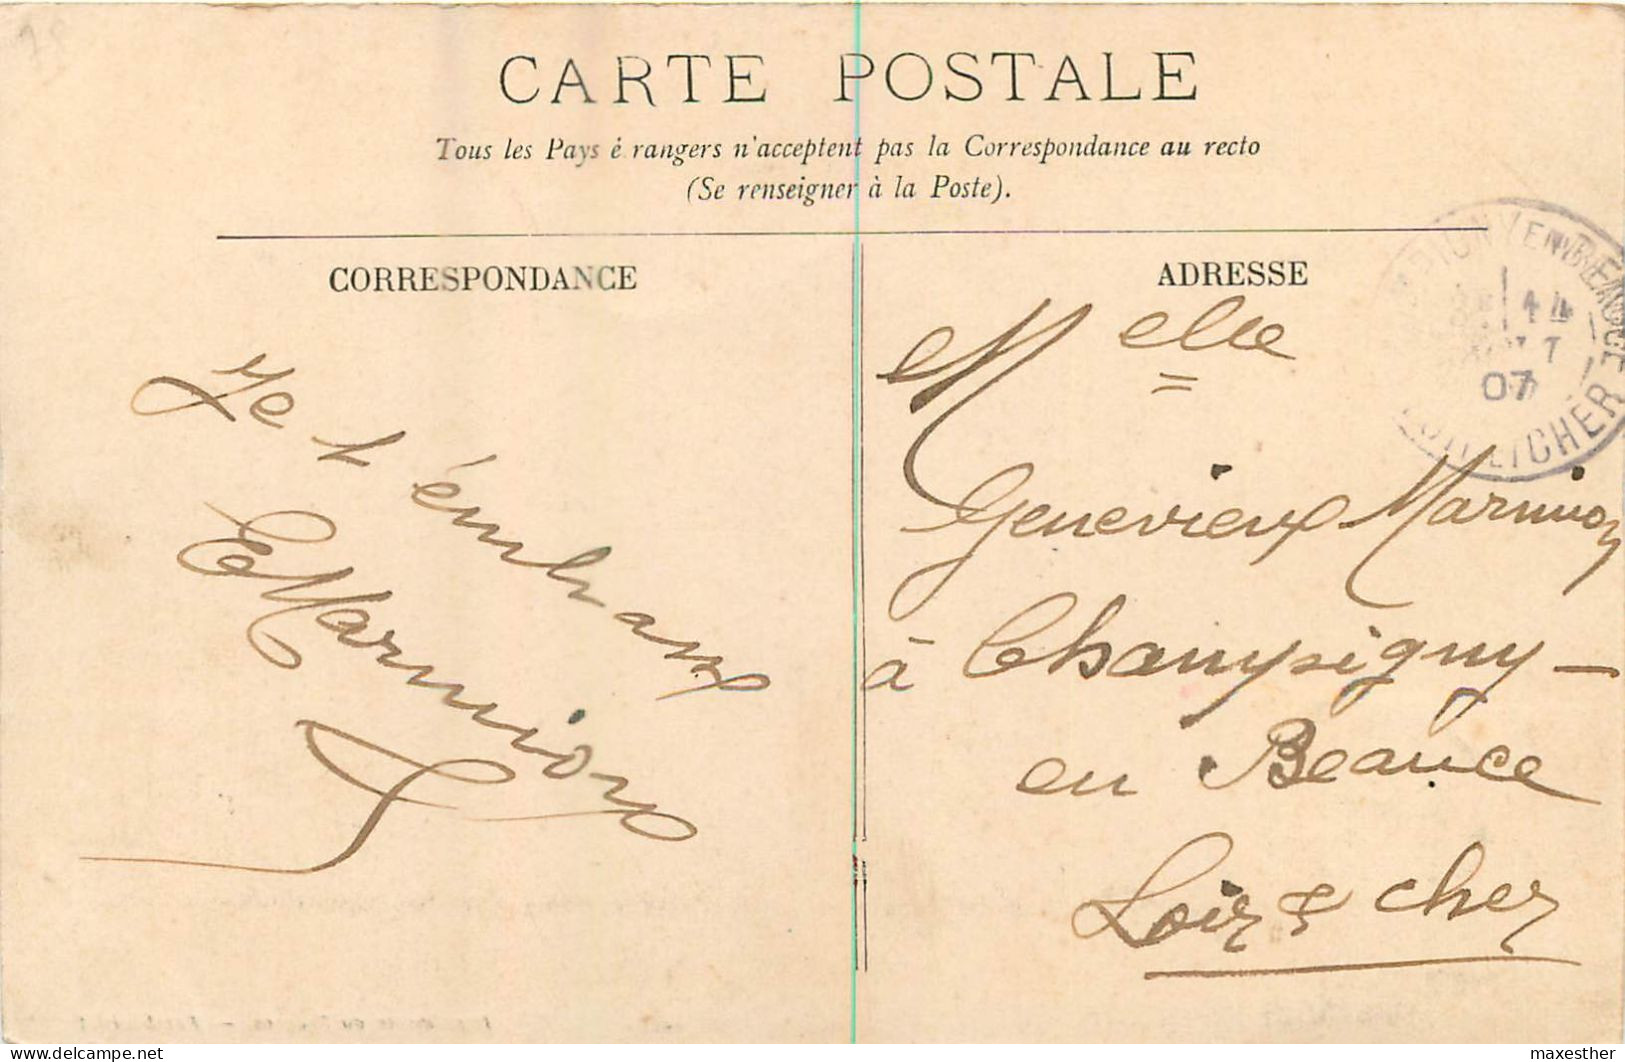 CARTE POSTALE
Tous les Pays é rangers n'acceptent pas la Correspondance au recto
(Se renseigner à la Poste).
CORRESPONDANCE
ADRESSE
Je t'embrasse
E Marmion
Melle
Genevieve Marmion
à Champigny-
en Beauce
Loir & cher
IGNY EN BEAUCE
14
07
LOIR & CHER
delcampe.net
maxesther